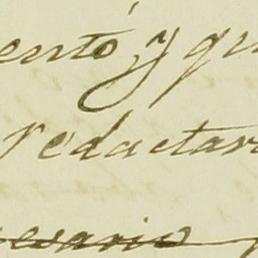 entó, y qu
redactar
esario